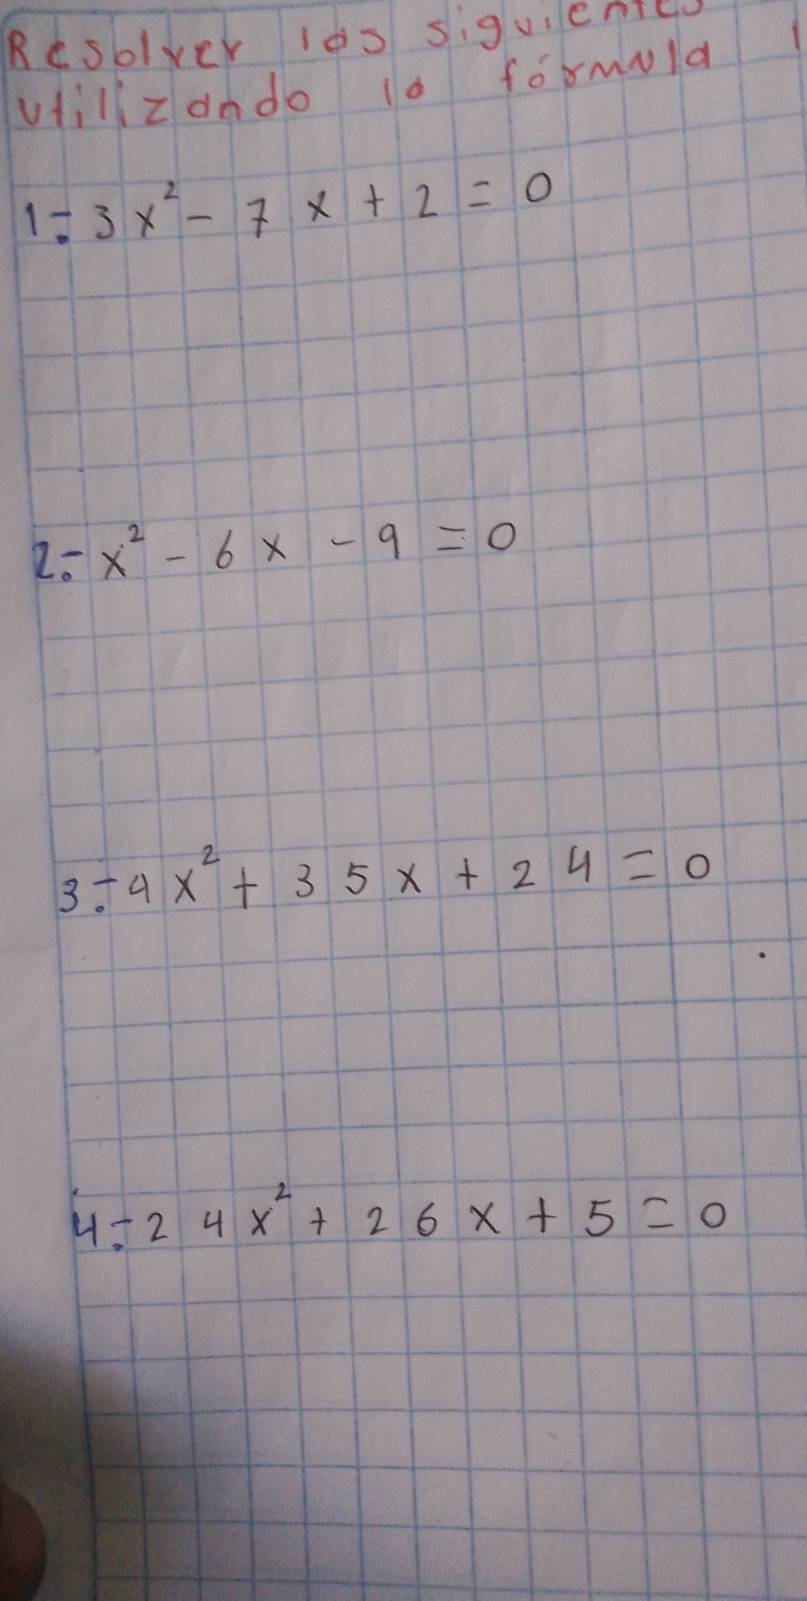 Resolver las siguientes
utilizando la fórmula
1.- 3x² - 7x + 2 = 0
2.- x² - 6x - 9 = 0
3.- 9x² + 35x + 24 = 0
4.- 24x² + 26x + 5 = 0